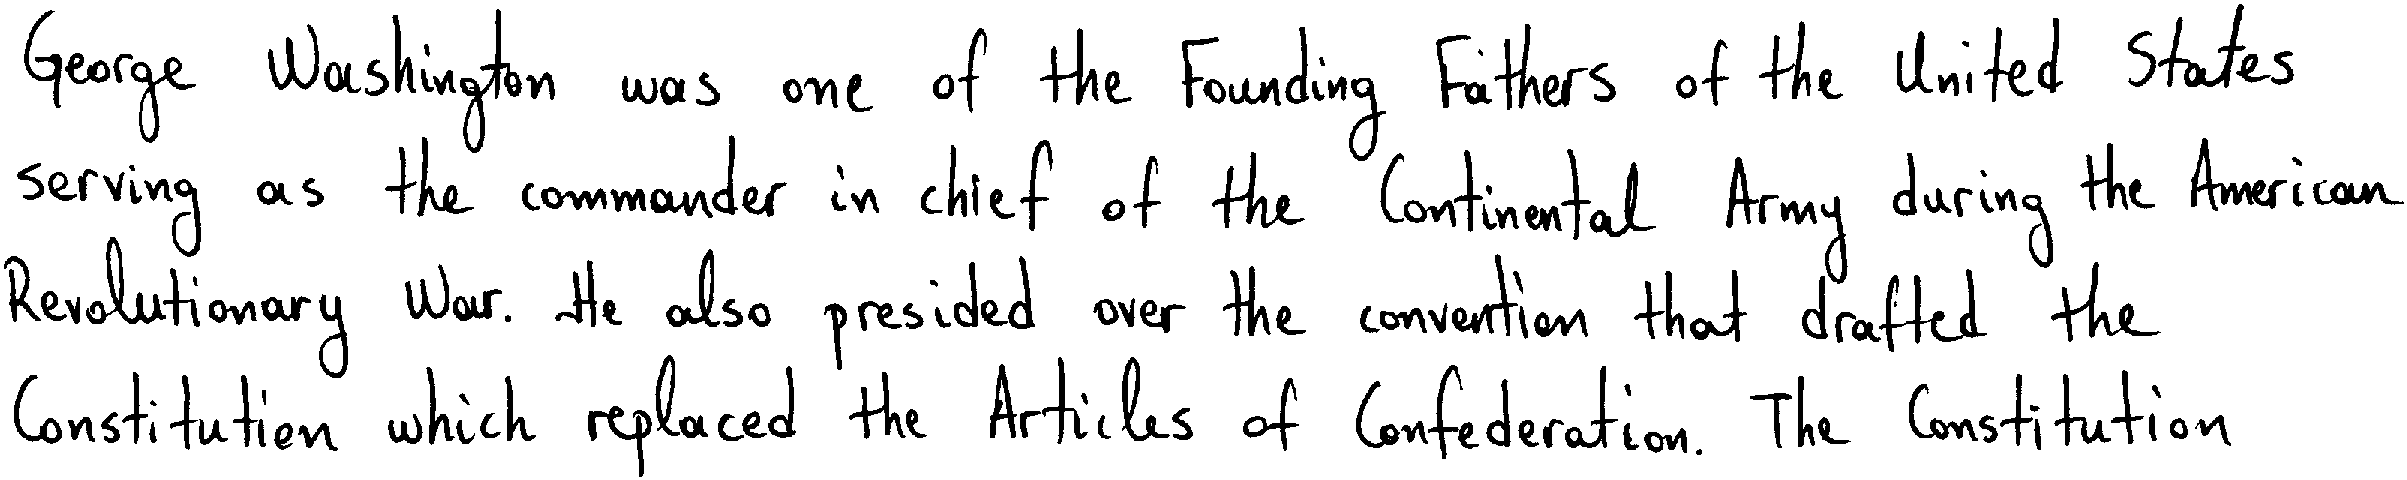 George Washington was one of the Founding Fathers of the United States
serving as the commander in chief of the Continental Army during the American
Revolutionary War. He also presided over the convention that drafted the
Constitution which replaced the Articles of Confederation. The Constitution